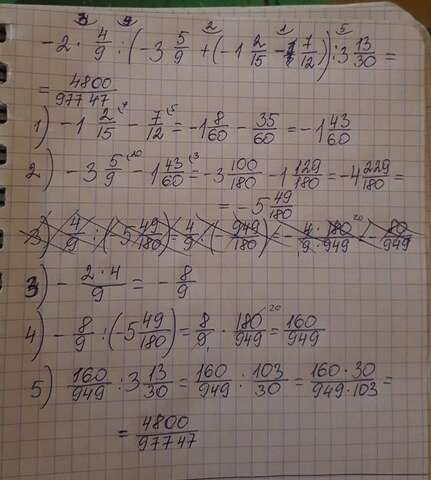 3 4 2 1 5
-2 · 4/9 : (-3 5/9 + (-1 2/15 - 7/12)) : 3 13/30 =
= 4800/97747
1) -1 2/15 - 7/12 = -1 8/60 - 35/60 = -1 43/60
2) -3 5/9 - 1 43/60 = -3 100/180 - 1 129/180 = -4 229/180 =
= -5 49/180
3) 4/9 : (-5 49/180) = 4/9 : (- 949/180) = - 4 · 180/9 · 949 = - 80/949
3) - 2 · 4/9 = - 8/9
4) - 8/9 : (-5 49/180) = 8/9 · 180/949 = 160/949
5) 160/949 : 3 13/30 = 160/949 : 103/30 = 160 · 30/949 · 103 =
= 4800/97747